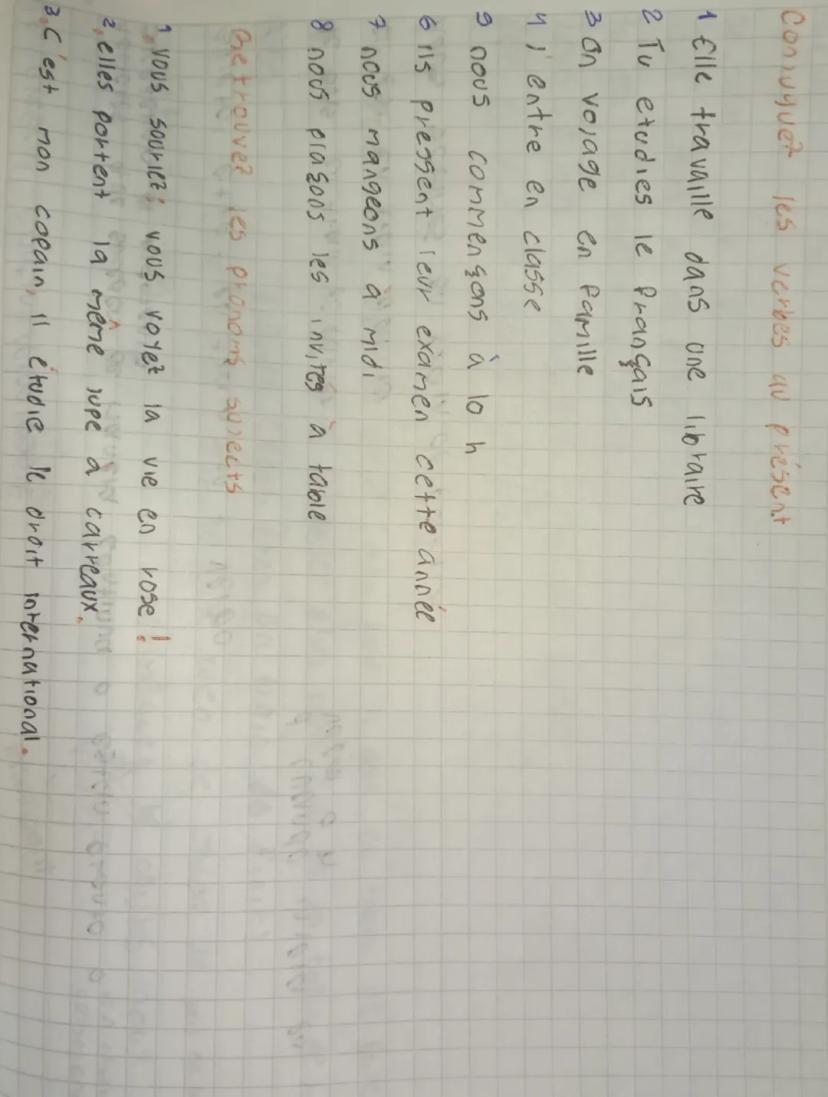 Conjuguez les verbes au présent
1 Elle travaille dans une libraire
2 Tu etudies le français
3 On voyage en famille
4 j'entre en classe
5 nous commençons à 10 h
6 ils pressent leur examen cette année
7 nous mangeons à midi
8 nous plaçons les invités à table
Retrouvez les pronoms sujects
1. Vous souriez: vous voyez la vie en rose!
2. elles portent la même jupe à carreaux.
3. C'est mon copain, il étudie le droit international.